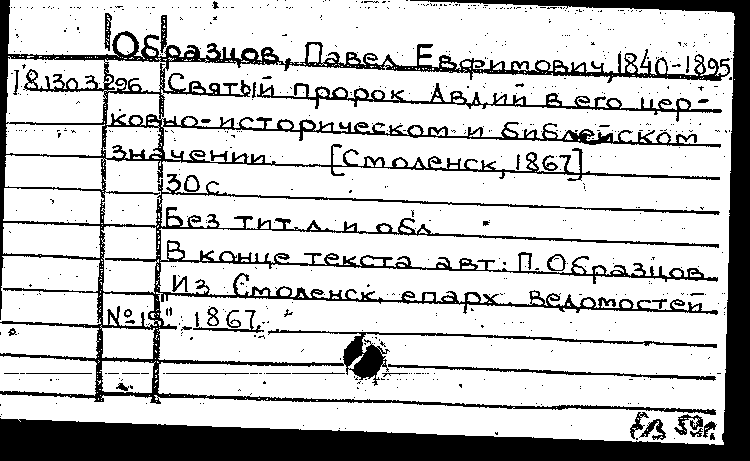 Образцов, Павел Евфимович, 1840-1895
18.130.3.296 Святый пророк Авдий в его цер-
ковно-историческом и библейском
значении. [Смоленск, 1867].
30 с.
Без тит. л. и обл.
В конце текста авт: П. Образцов
Из "Смоленск. епарх. ведомостей
№ 15" 1867.